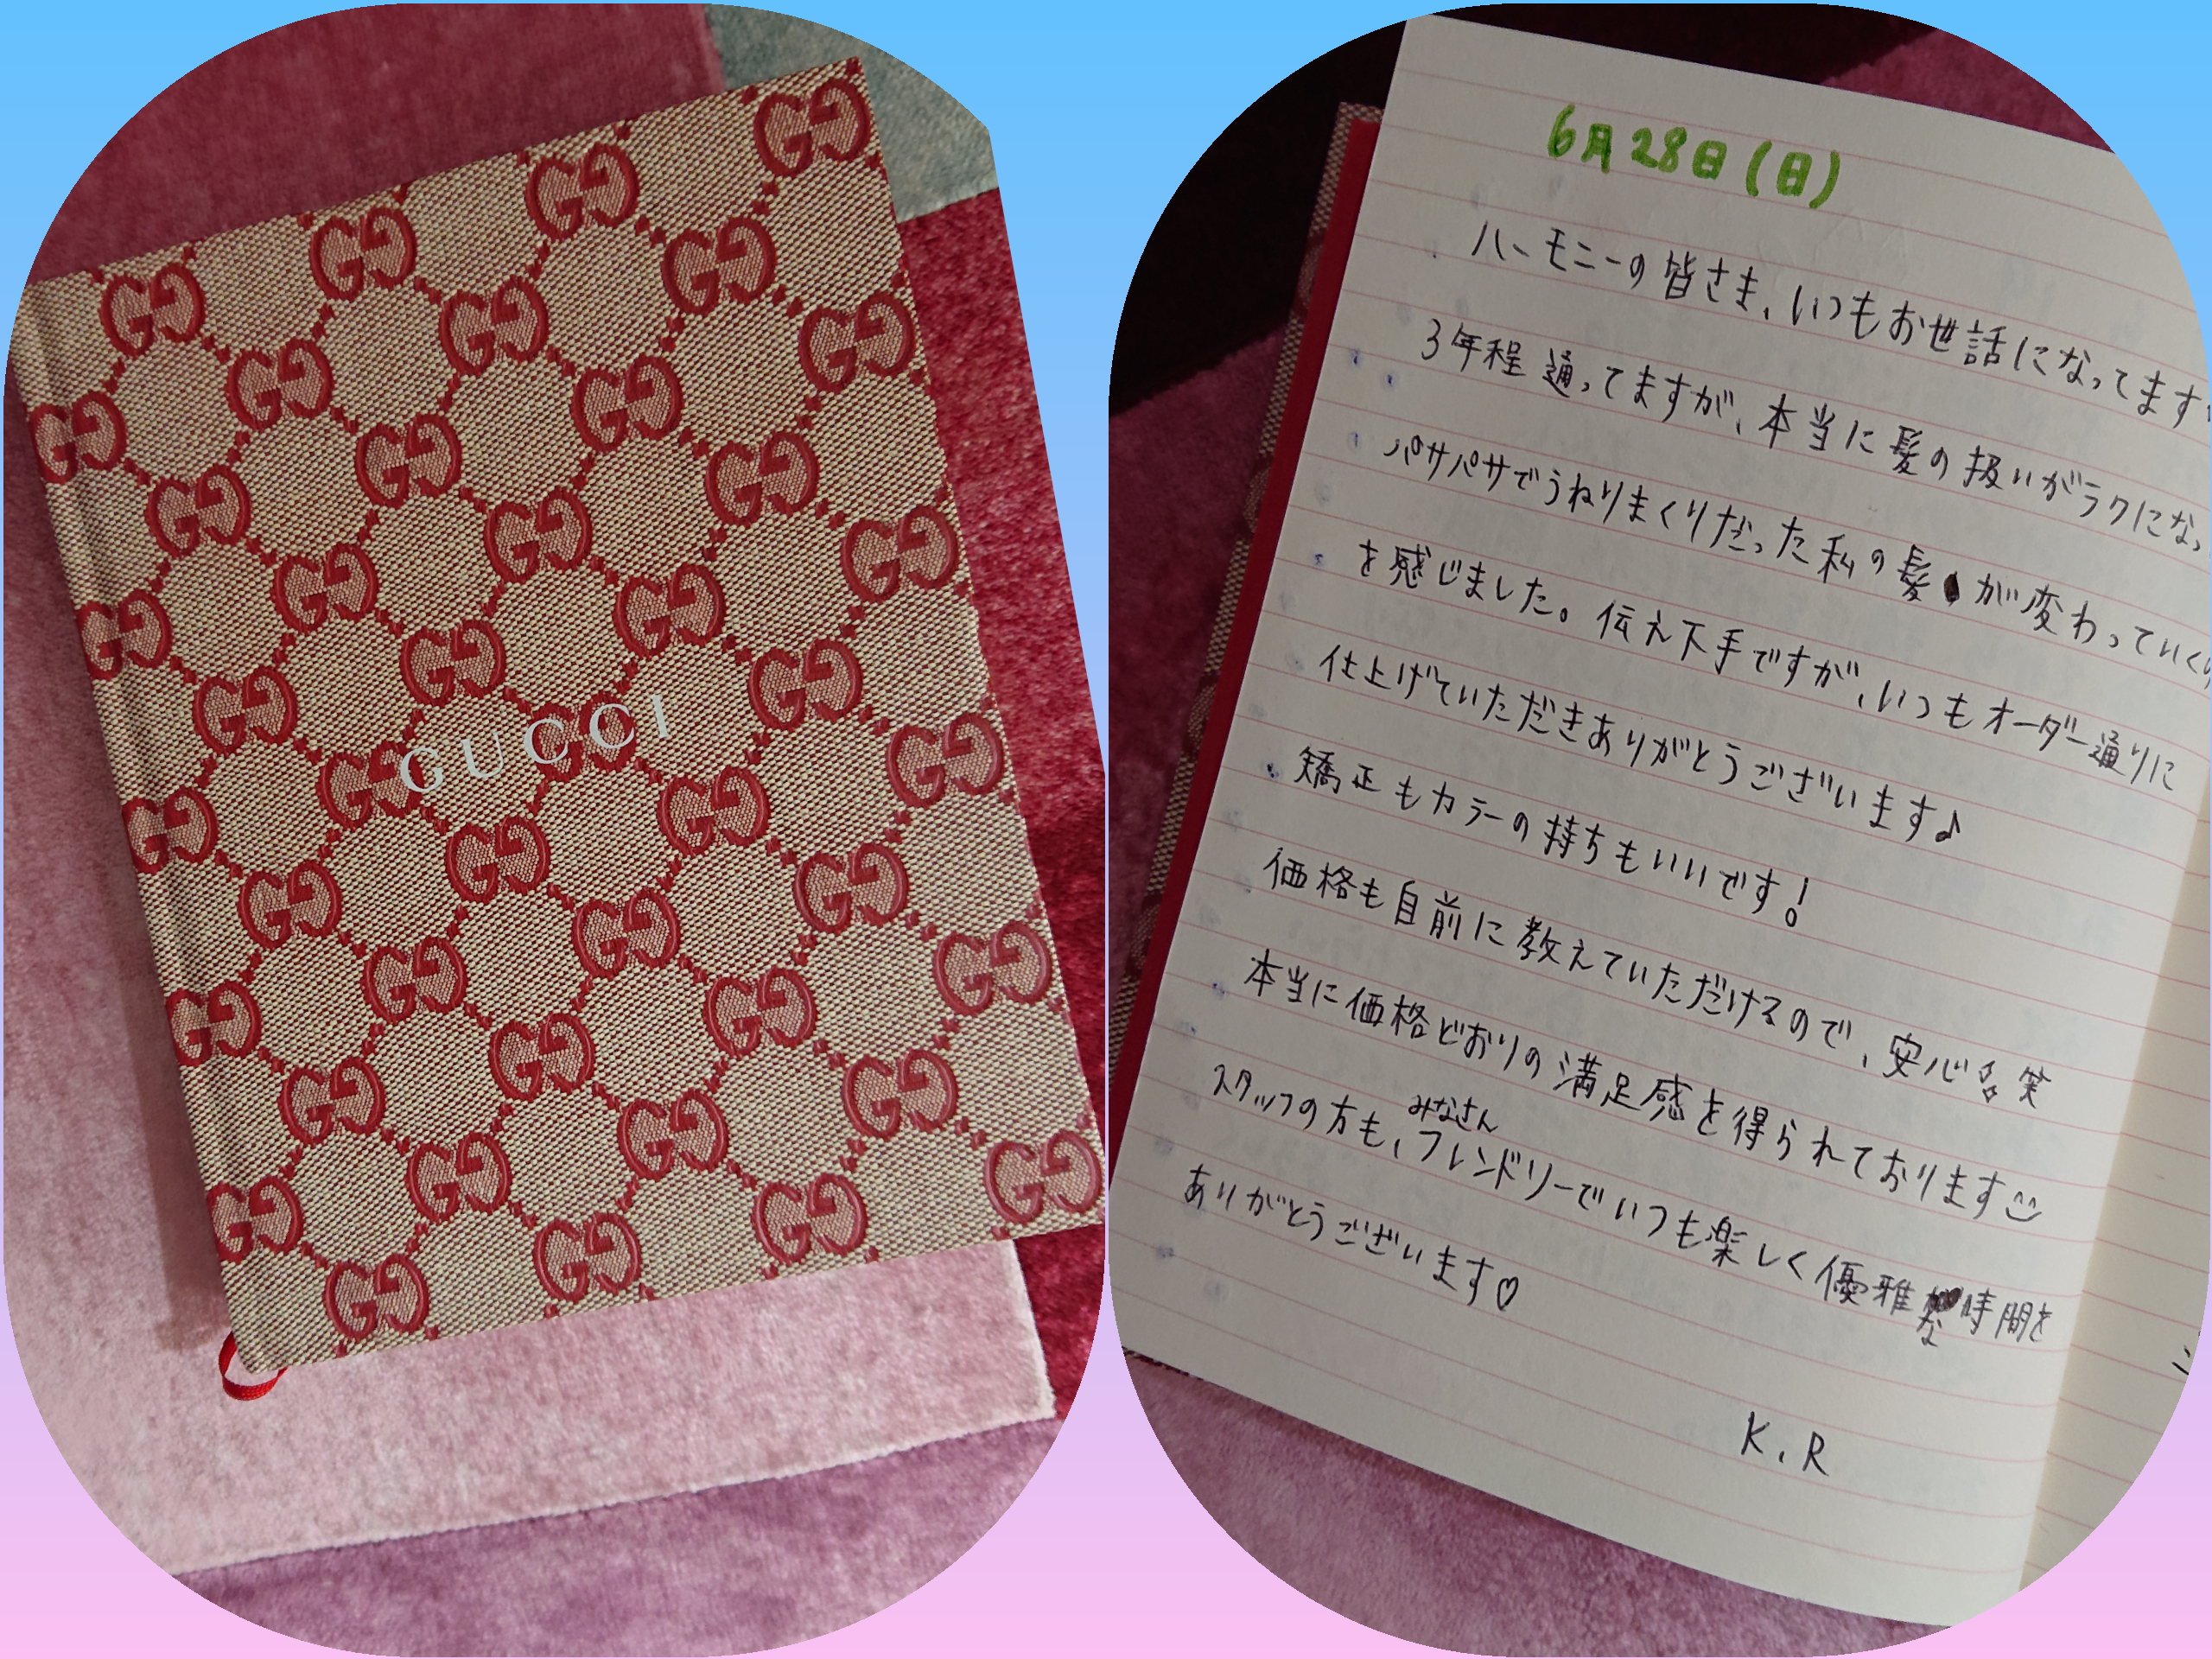 GUCCI
6月28日(日)
ハーモニーの皆さま、いつもお世話になってます
3年程通ってますが、本当に髪の扱いがラクになっ
パサパサでうねりまくりだった私の髪が変わっていくの
を感じました。伝え下手ですが、いつもオーダー通りに
仕上げていただきありがとうございます♪
矯正もカラーの持ちもいいです!
価格も自前に教えていただけるので、安心 笑
本当に価格どおりの満足感を得られております☺
みなさん
スタッフの方も、フレンドリーでいつも楽しく優雅な時間を
ありがとうございます♡
K.R